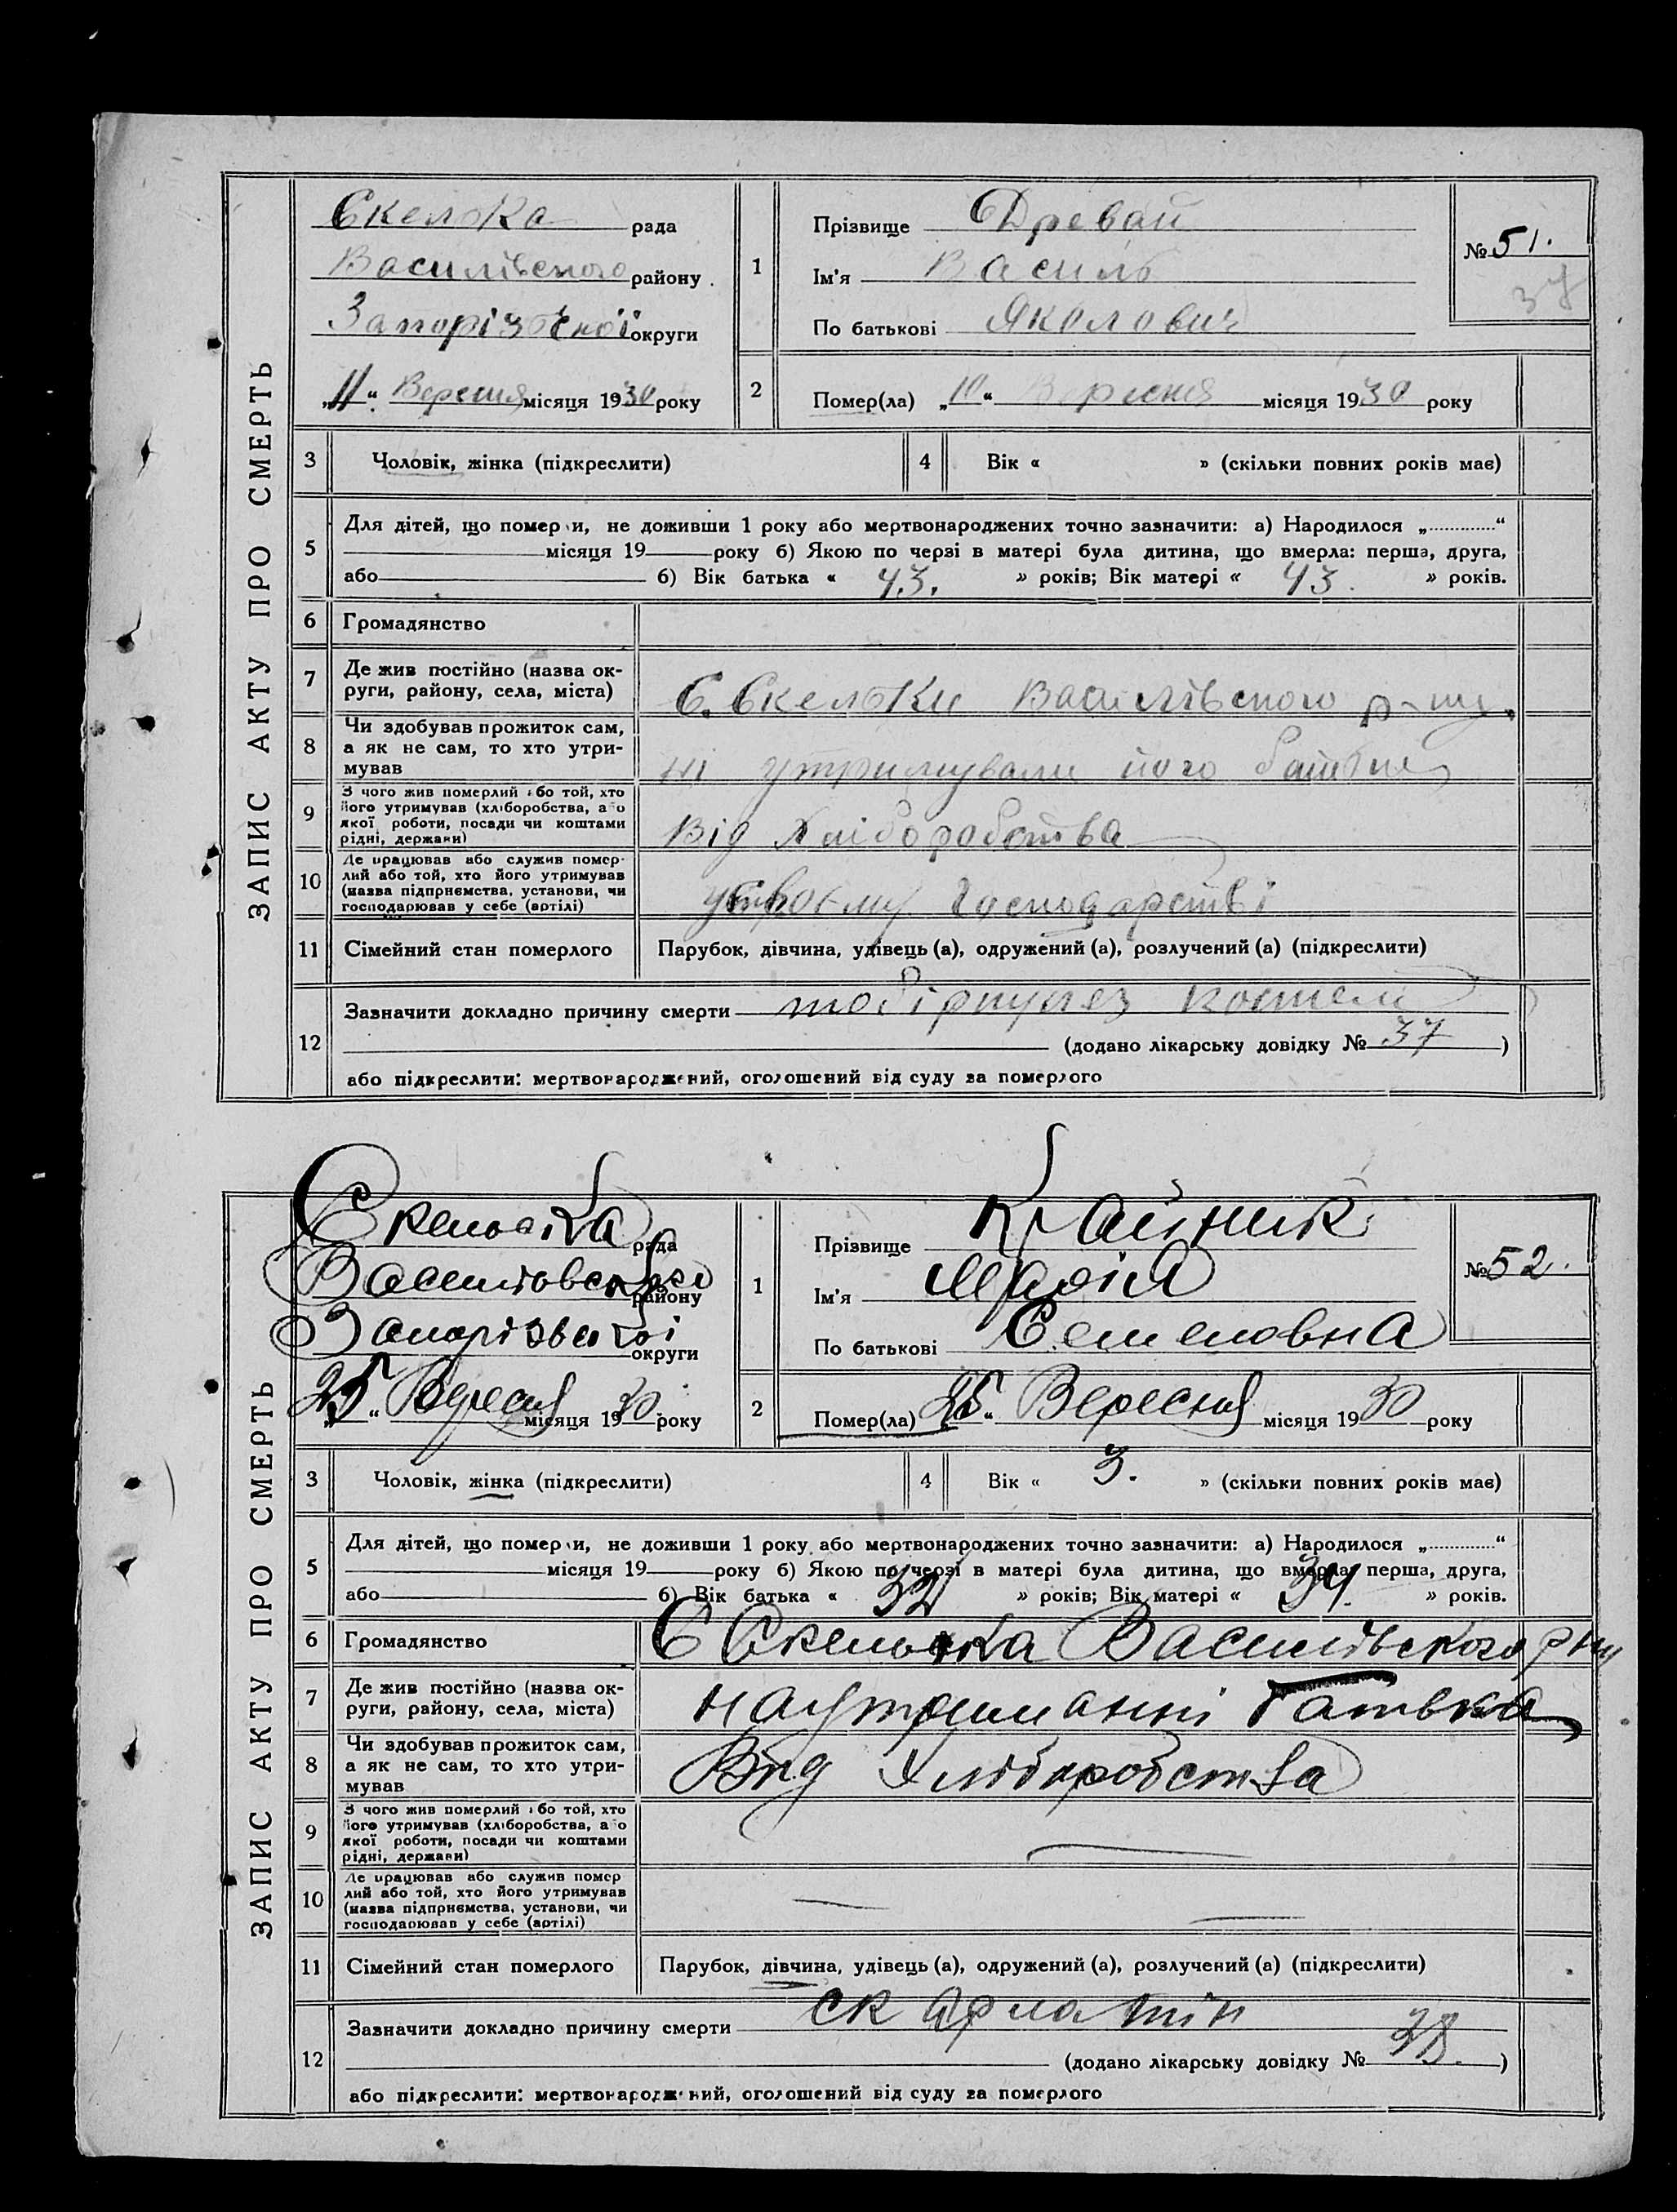 ЗАПИС АКТУ ПРО СМЕРТЬ
Скелька рада
Василівського району
Запорізької округи
„11“ Вересня місяця 1930 року
1
Прізвище Древаль
Ім'я Василь
По батькові Яковлович
№ 51.
37
2
Помер(ла) „10“ Вересня місяця 1930 року
3 Чоловік, жінка (підкреслити)
4 Вік « » (скільки повних років має)
5 Для дітей, що померли, не доживши 1 року або мертвонароджених точно зазначити: а) Народилося „ “
місяця 19 року б) Якою по черзі в матері була дитина, що вмерла: перша, друга,
або б) Вік батька « 43. » років; Вік матері « 43. » років.
6 Громадянство
7 Де жив постійно (назва округи, району, села, міста) С. Скельки Василівського р-ну.
8 Чи здобував прожиток сам, а як не сам, то хто утримував ні утримували його батьки
9 З чого жив померлий або той, хто його утримував (хліборобства, або якої роботи, посади чи коштами рідні, держави) Від Хліборобства
10 Де працював або служив померлий або той, хто його утримував (назва підприємства, установи, чи господарював у себе (артілі) господарстві
11 Сімейний стан померлого Парубок, дівчина, удівець (а), одружений (а), розлучений (а) (підкреслити)
12 Зазначити докладно причину смерти
(додано лікарську довідку № 37 )
або підкреслити: мертвонароджений, оголошений від суду за померлого
ЗАПИС АКТУ ПРО СМЕРТЬ
Скельська рада
Василівського району
Запорізької округи
„25“ Вересня місяця 1930 року
1
Прізвище Крайник
Ім'я Марія
По батькові Семеловна
№ 52.
2
Помер(ла) „25“ Вересня місяця 1930 року
3 Чоловік, жінка (підкреслити)
4 Вік « 3. » (скільки повних років має)
5 Для дітей, що померли, не доживши 1 року або мертвонароджених точно зазначити: а) Народилося „ “
місяця 19 року б) Якою по черзі в матері була дитина, що вмерла: перша, друга,
або б) Вік батька « 32 » років; Вік матері « 34. » років.
6 Громадянство С Скельска Василівського рну
7 Де жив постійно (назва округи, району, села, міста) на утриманні батька
8 Чи здобував прожиток сам, а як не сам, то хто утримував Від Хліборобства
9 З чого жив померлий або той, хто його утримував (хліборобства, або якої роботи, посади чи коштами рідні, держави)
10 Де працював або служив померлий або той, хто його утримував (назва підприємства, установи, чи господарював у себе (артілі)
11 Сімейний стан померлого Парубок, дівчина, удівець (а), одружений (а), розлучений (а) (підкреслити)
12 Зазначити докладно причину смерти скарлатін
(додано лікарську довідку № 38. )
або підкреслити: мертвонароджений, оголошений від суду за померлого